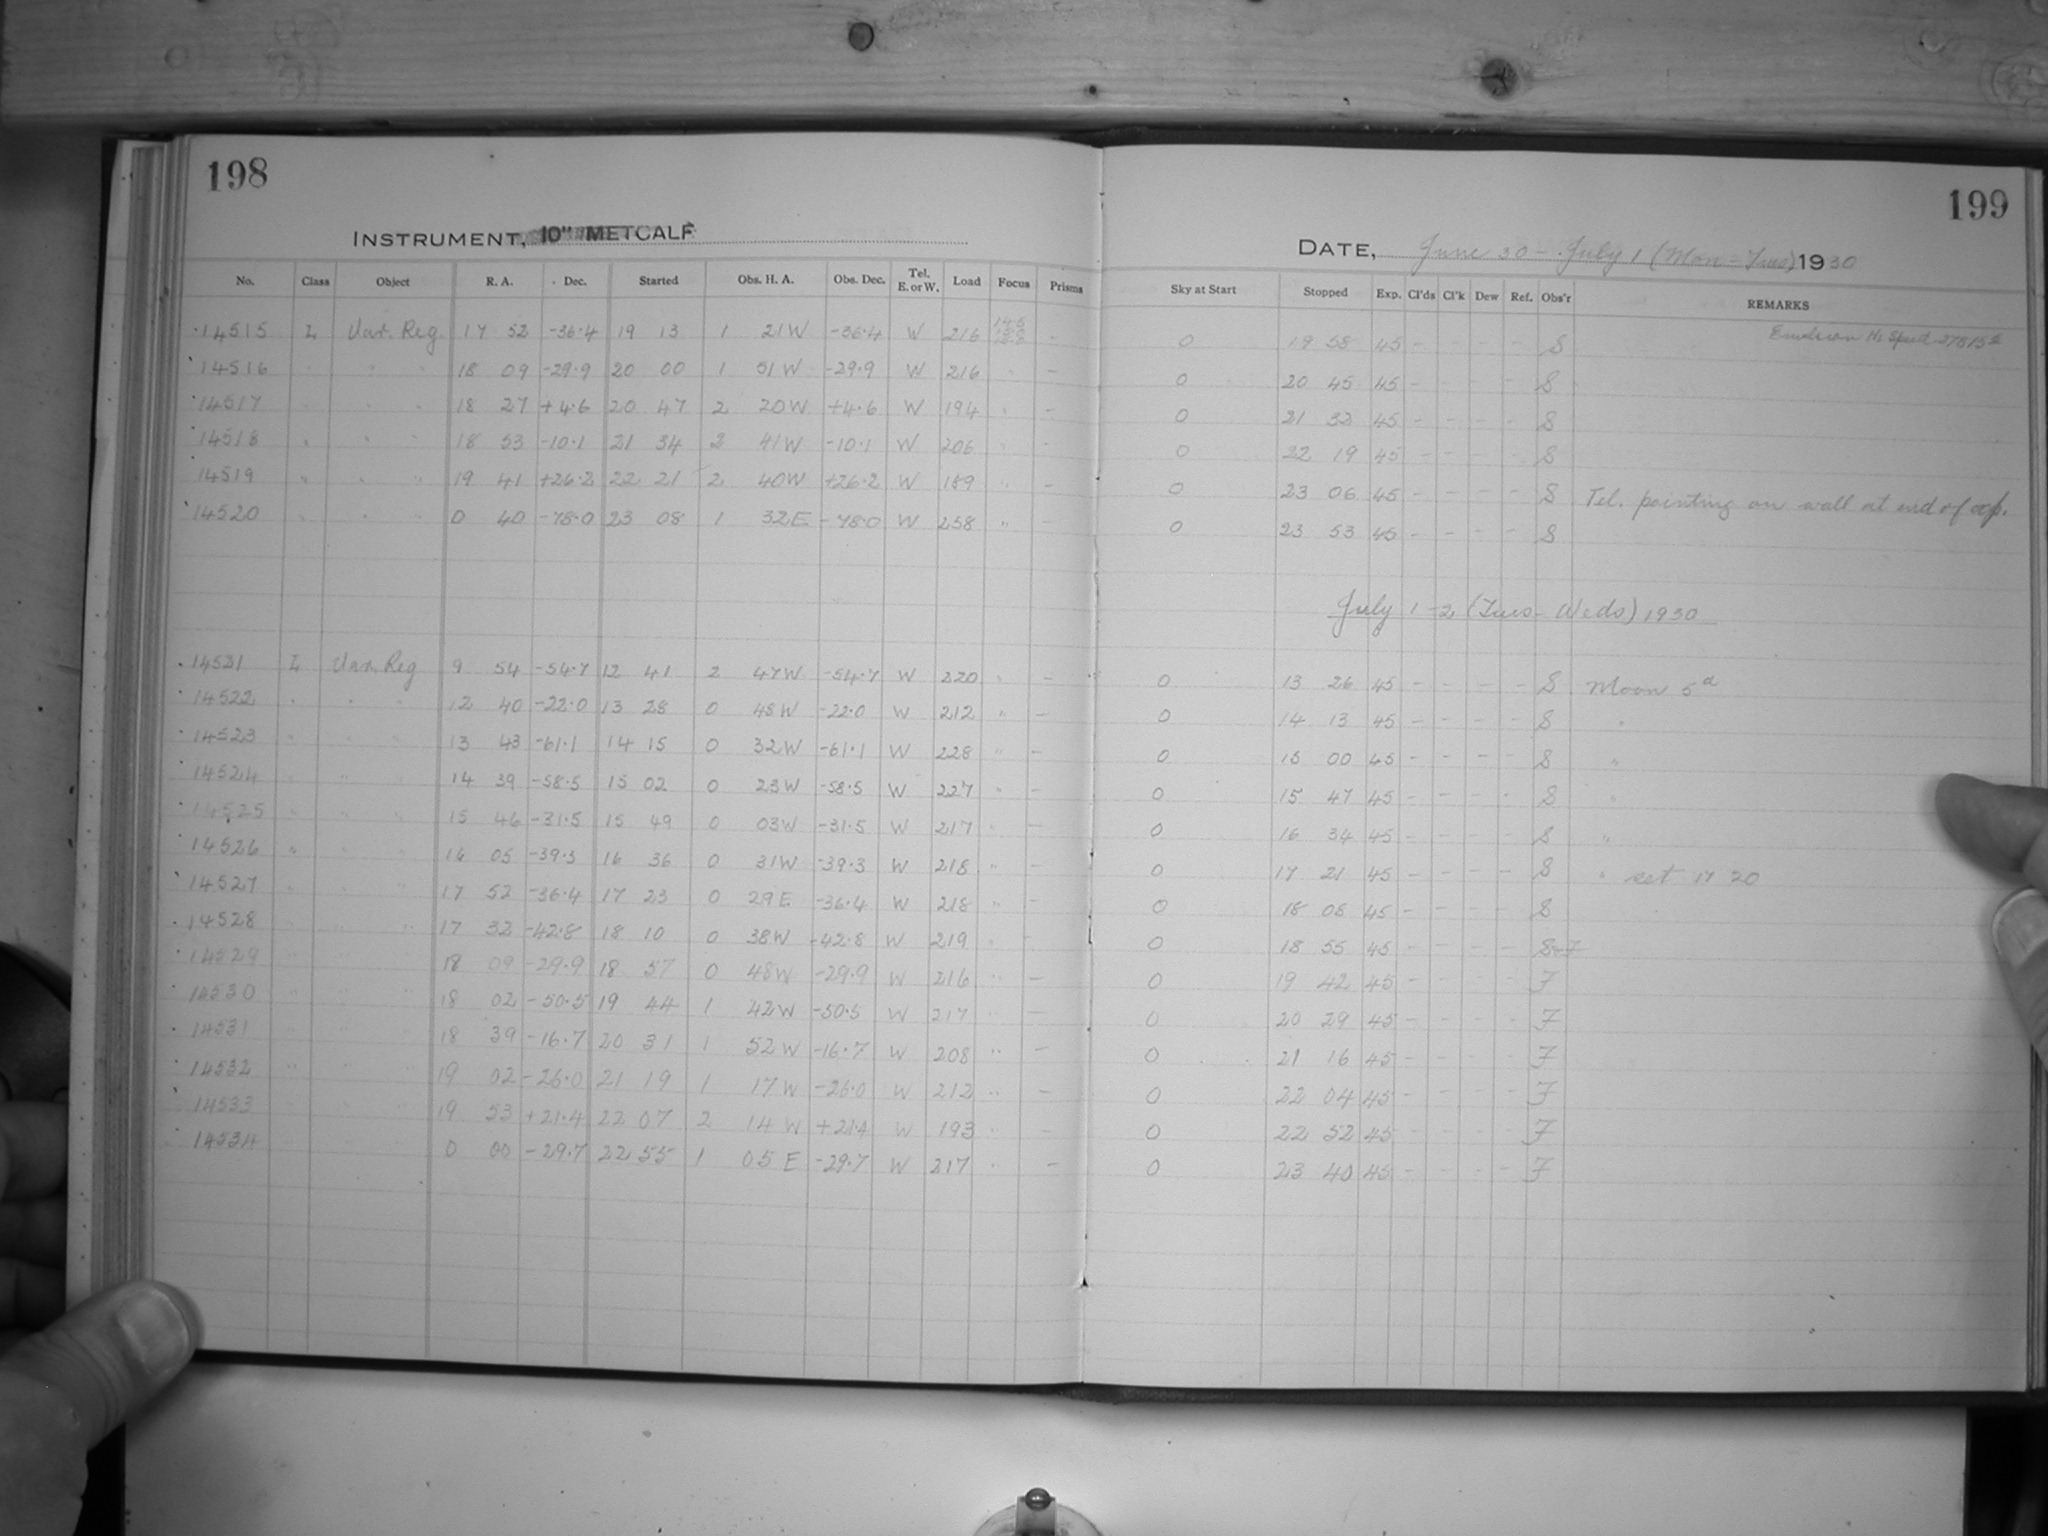 198
INSTRUMENT, 10" METCALF
No. Class Object R. A. Dec. Started Obs. H. A. Obs. Dec. Tel. E. or W. Load Focus Prisms
14515 L Var. Reg. 17 52 -36.4 19 13 1 21W -36.4 W 216 -
14516 " " " 18 09 -29.9 20 00 1 51W -29.9 W 216 " -
14517 " " " 18 27 +4.6 20 47 2 20W +4.6 W 194 " -
14518 " " " 18 53 -10.1 21 34 2 41W -10.1 W 206 " -
14519 " " " 19 41 +26.2 22 21 2 40W +26.2 W 189 " -
14520 " " " 0 40 -78.0 23 08 1 32E -78.0 W 238 " -
14521 L Var. Reg 9 54 -54.7 12 41 2 47W -54.7 W 220 " -
14522 " " " 12 40 -22.0 13 28 0 48W -22.0 W 212 " -
14523 " " " 13 43 -61.1 14 15 0 32W -61.1 W 228 " -
14524 " " " 14 39 -58.5 15 02 0 23W -58.5 W 227 " -
14525 " " " 15 46 -31.5 15 49 0 03W -31.5 W 217 " -
14526 " " " 16 05 -39.3 16 36 0 31W -39.3 W 218 " -
14527 " " " 17 52 -36.4 17 23 0 29E -36.4 W 218 " -
14528 " " " 17 32 -42.8 18 10 0 38W -42.8 W 219 " -
14529 " " " 18 09 -29.9 18 57 0 48W -29.9 W 216 " -
14530 " " " 18 02 -50.5 19 44 1 42W -50.5 W 217 " -
14531 " " " 18 39 -16.7 20 31 1 52W -16.7 W 208 " -
14532 " " " 19 02 -26.0 21 19 1 17W -26.0 W 212 " -
14533 " " " 19 53 +21.4 22 07 2 14W +21.4 W 193 " -
14534 0 00 -29.7 22 55 1 05E -29.7 W 217 " -
199
DATE, June 30 - July 1 (Mon - Tues) 1930
Sky at Start Stopped Exp. Cl'ds Cl'k Dew Ref. Obs'r REMARKS
0 19 58 45 - - - - S Emulsion Hi Speed
0 20 45 45 - - - - S
0 21 32 45 - - - - S
0 22 19 45 - - - - S
0 23 06 45 - - - - S Tel. pointing on wall at end of exp.
0 23 53 45 - - - - S
July 1-2 (Tues - Weds) 1930
0 13 26 45 - - - - S Moon 5d
0 14 13 45 - - - - S "
0 15 00 45 - - - - S "
0 15 47 45 - - - - S "
0 16 34 45 - - - - S "
0 17 21 45 - - - - S " set 17 20
0 18 08 45 - - - - S
0 18 55 45 - - - - S
0 19 42 45 - - - - F
0 20 29 45 - - - - F
0 21 16 45 - - - - F
0 22 04 45 - - - - F
0 22 52 45 - - - - F
0 23 40 45 - - - - F